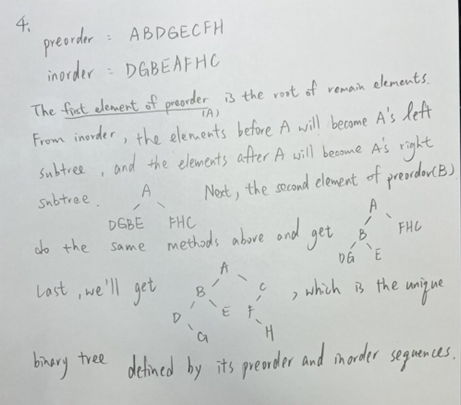 4.
preorder : ABDGECFH
inorder = DGBEAFHC
The first element of preorder is the root of remain elements.
(A)
From inorder, the elements before A will become A's left
subtree, and the elements after A will become A's right
subtree. Next, the second element of preorder(B)
A
DGBE FHC
do the same methods above and get
A
B FHC
DG E
Last, we'll get , which is the unique
A
B C
D E F
G H
binary tree defined by its preorder and inorder sequences.